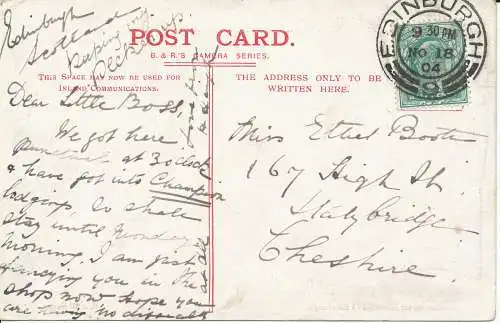 Edinburgh
Scotland
Keeping my
pecker up
POST CARD.
B. & R.'S CAMERA SERIES.
THIS SPACE MAY NOW BE USED FOR
INLAND COMMUNICATIONS.
THE ADDRESS ONLY TO BE
WRITTEN HERE.
EDINBURGH
9 30 PM
NO 18
04
Dear Little Boss,
We got here
punctual at 3 o'clock
& have got into Champion
lodgings, So shall
stay until Monday
morning. I am just
fancying you in the
shop now hope you
are having no
Miss Ethel Booth
167 High St.
Stalybridge
Cheshire.